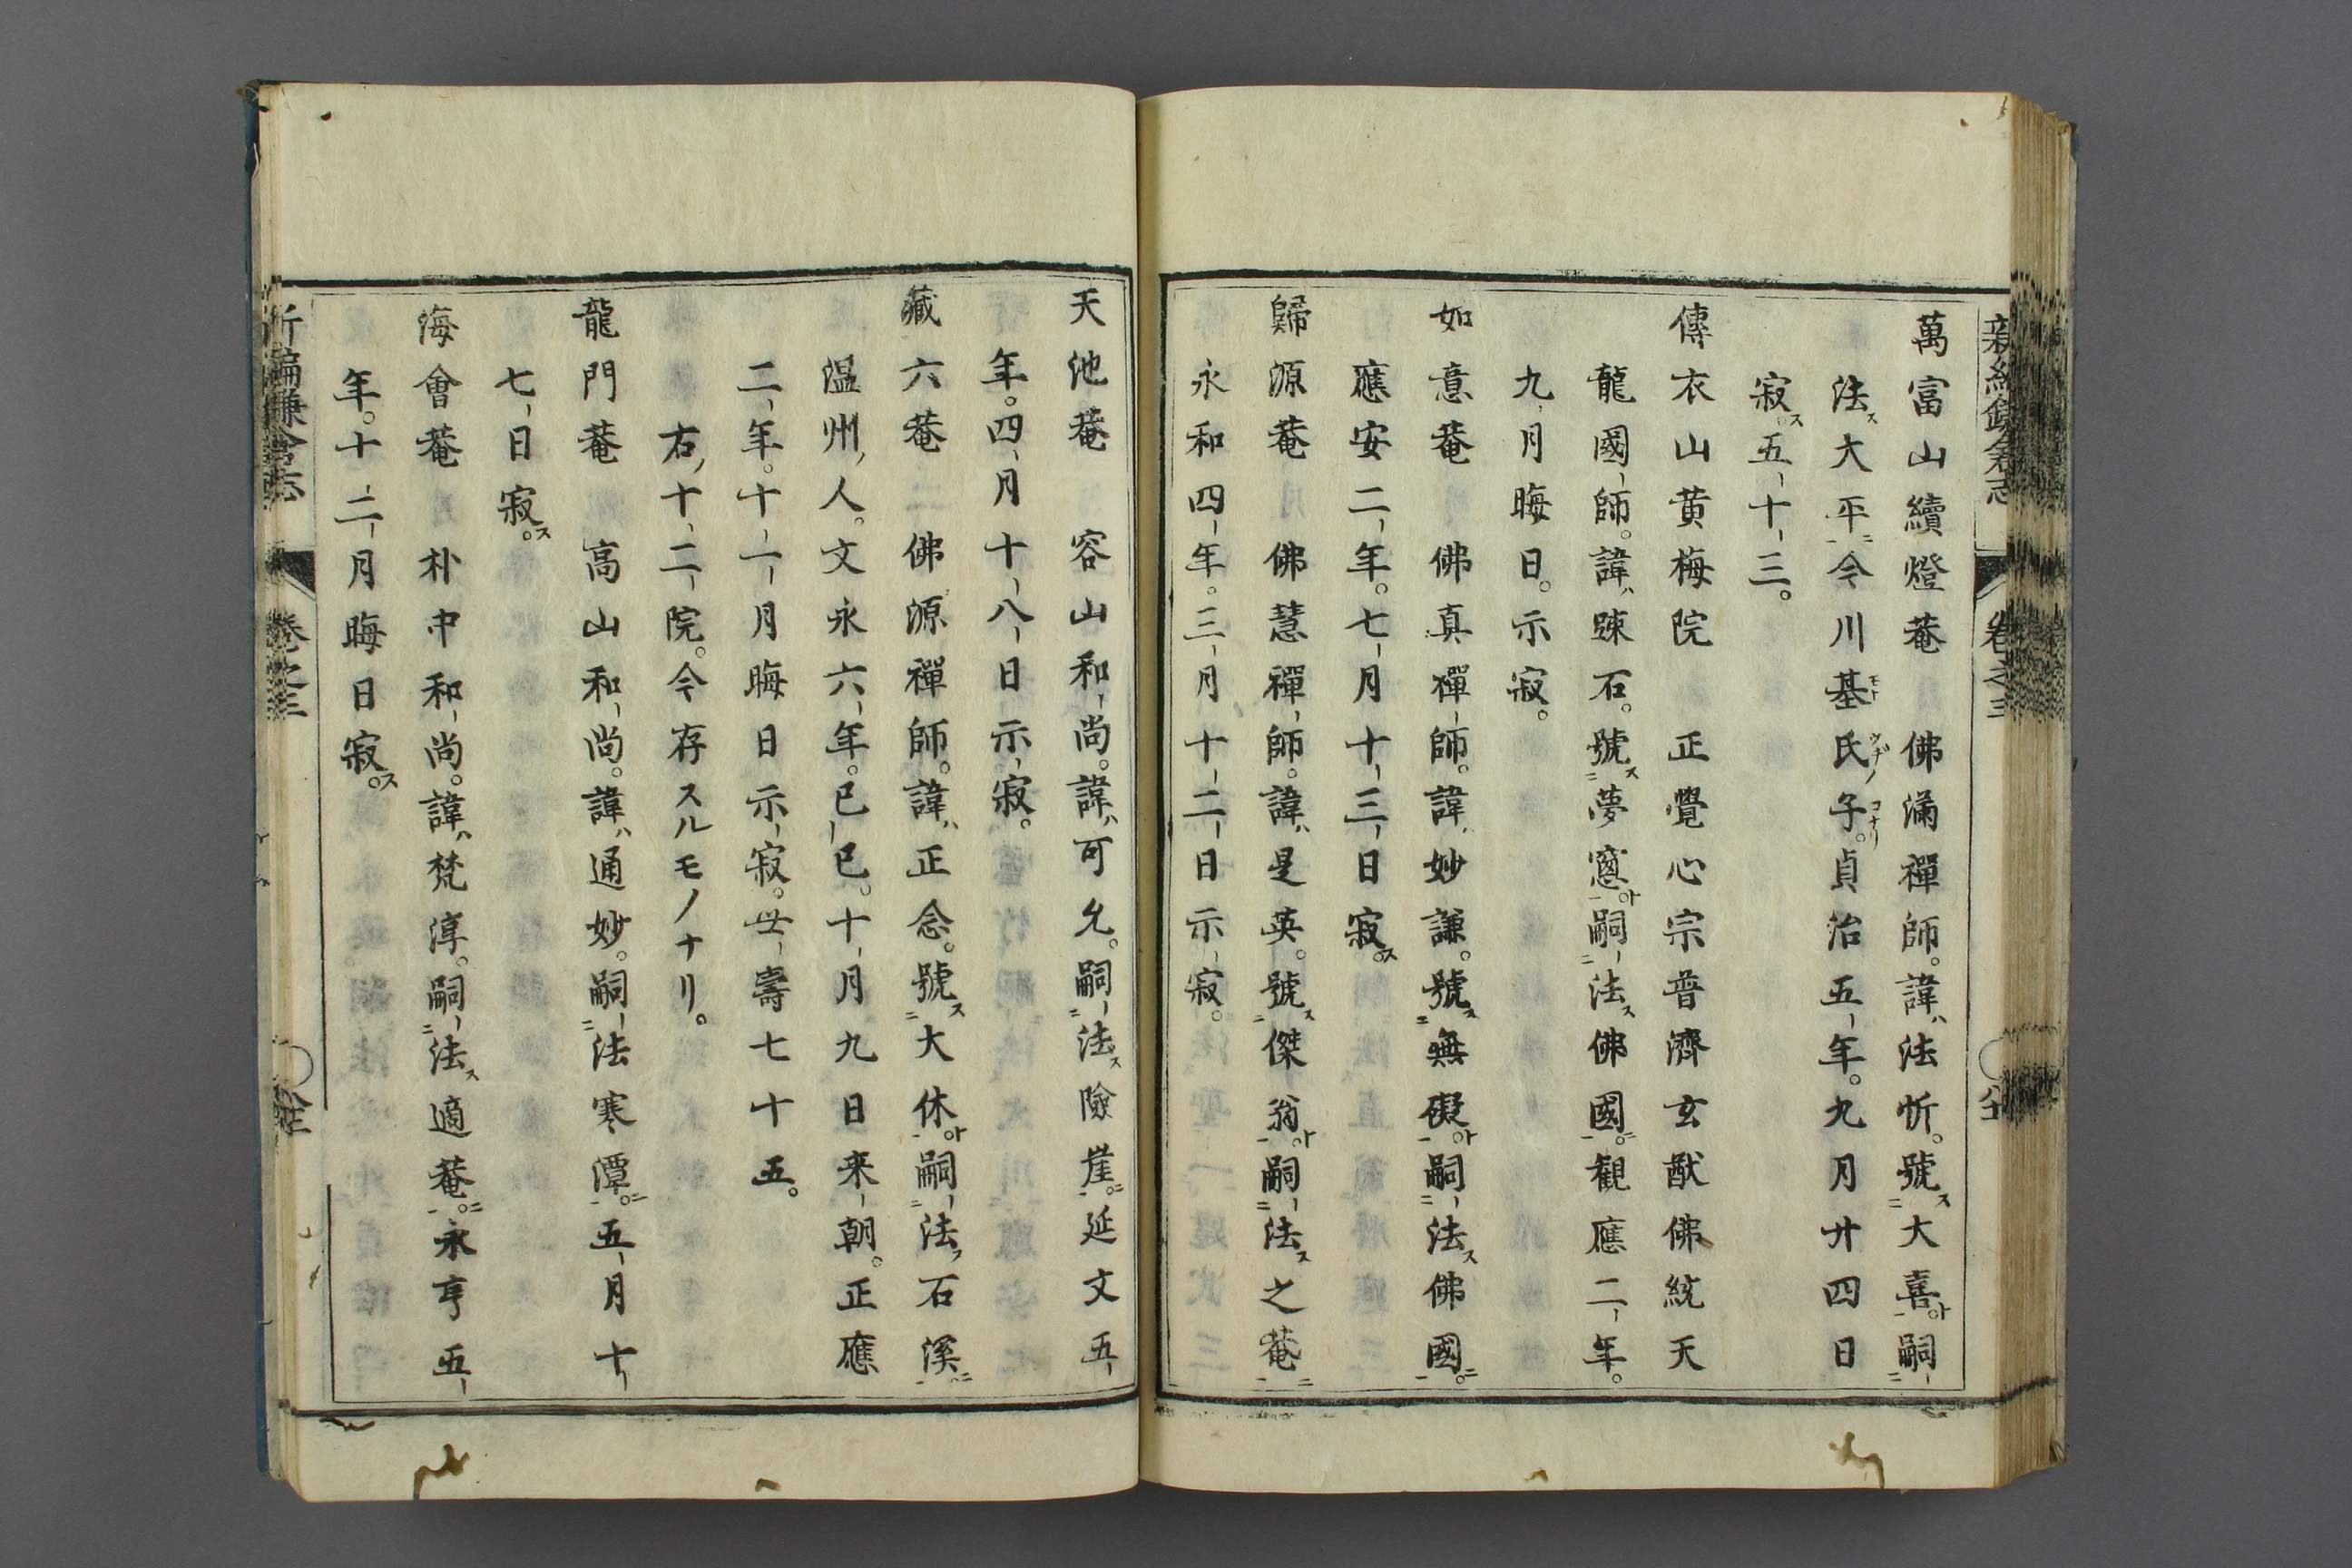 新編鎌倉志 卷之三
萬富山續燈菴 佛滿禪師。諱ハ法忻。號ス大喜ト。嗣
法ス大平ニ今川基氏子。貞治五年。九月廿四日
寂ス。五十三。
傳衣山黃梅院 正覺心宗普濟玄猷佛統天
龍國師。諱ハ踈石。號ス夢窻ト。嗣法ス佛國ニ。観應二年。
九月晦日。示寂。
如意菴 佛真禪師。諱ハ妙謙。號ス無礙ト。嗣法ス佛國ニ。
應安二年。七月十三日寂ス。
歸源菴 佛慧禪師。諱ハ是英。號ス傑翁ト。嗣法ス之菴ニ
永和四年。三月十二日示寂。
天池菴 容山和尚。諱ハ可允。嗣法ス險崖ニ。延文五
年。四月十八日示寂。
藏六菴 佛源禪師。諱ハ正念。號ス大休ト。嗣法ス石溪ニ。
温州ノ人。文永六年。己巳。十月九日来朝。正應
二年。十一月晦日示寂。世壽七十五。
右ノ十二院。今存スルモノナリ。
龍門菴 高山和尚。諱ハ通妙。嗣法寒潭ニ。五月十
七日寂ス。
海會菴 朴中和尚。諱ハ梵淳。嗣法ス適菴ニ。永亨五
年。十二月晦日寂ス。
新編鎌倉志 卷之三